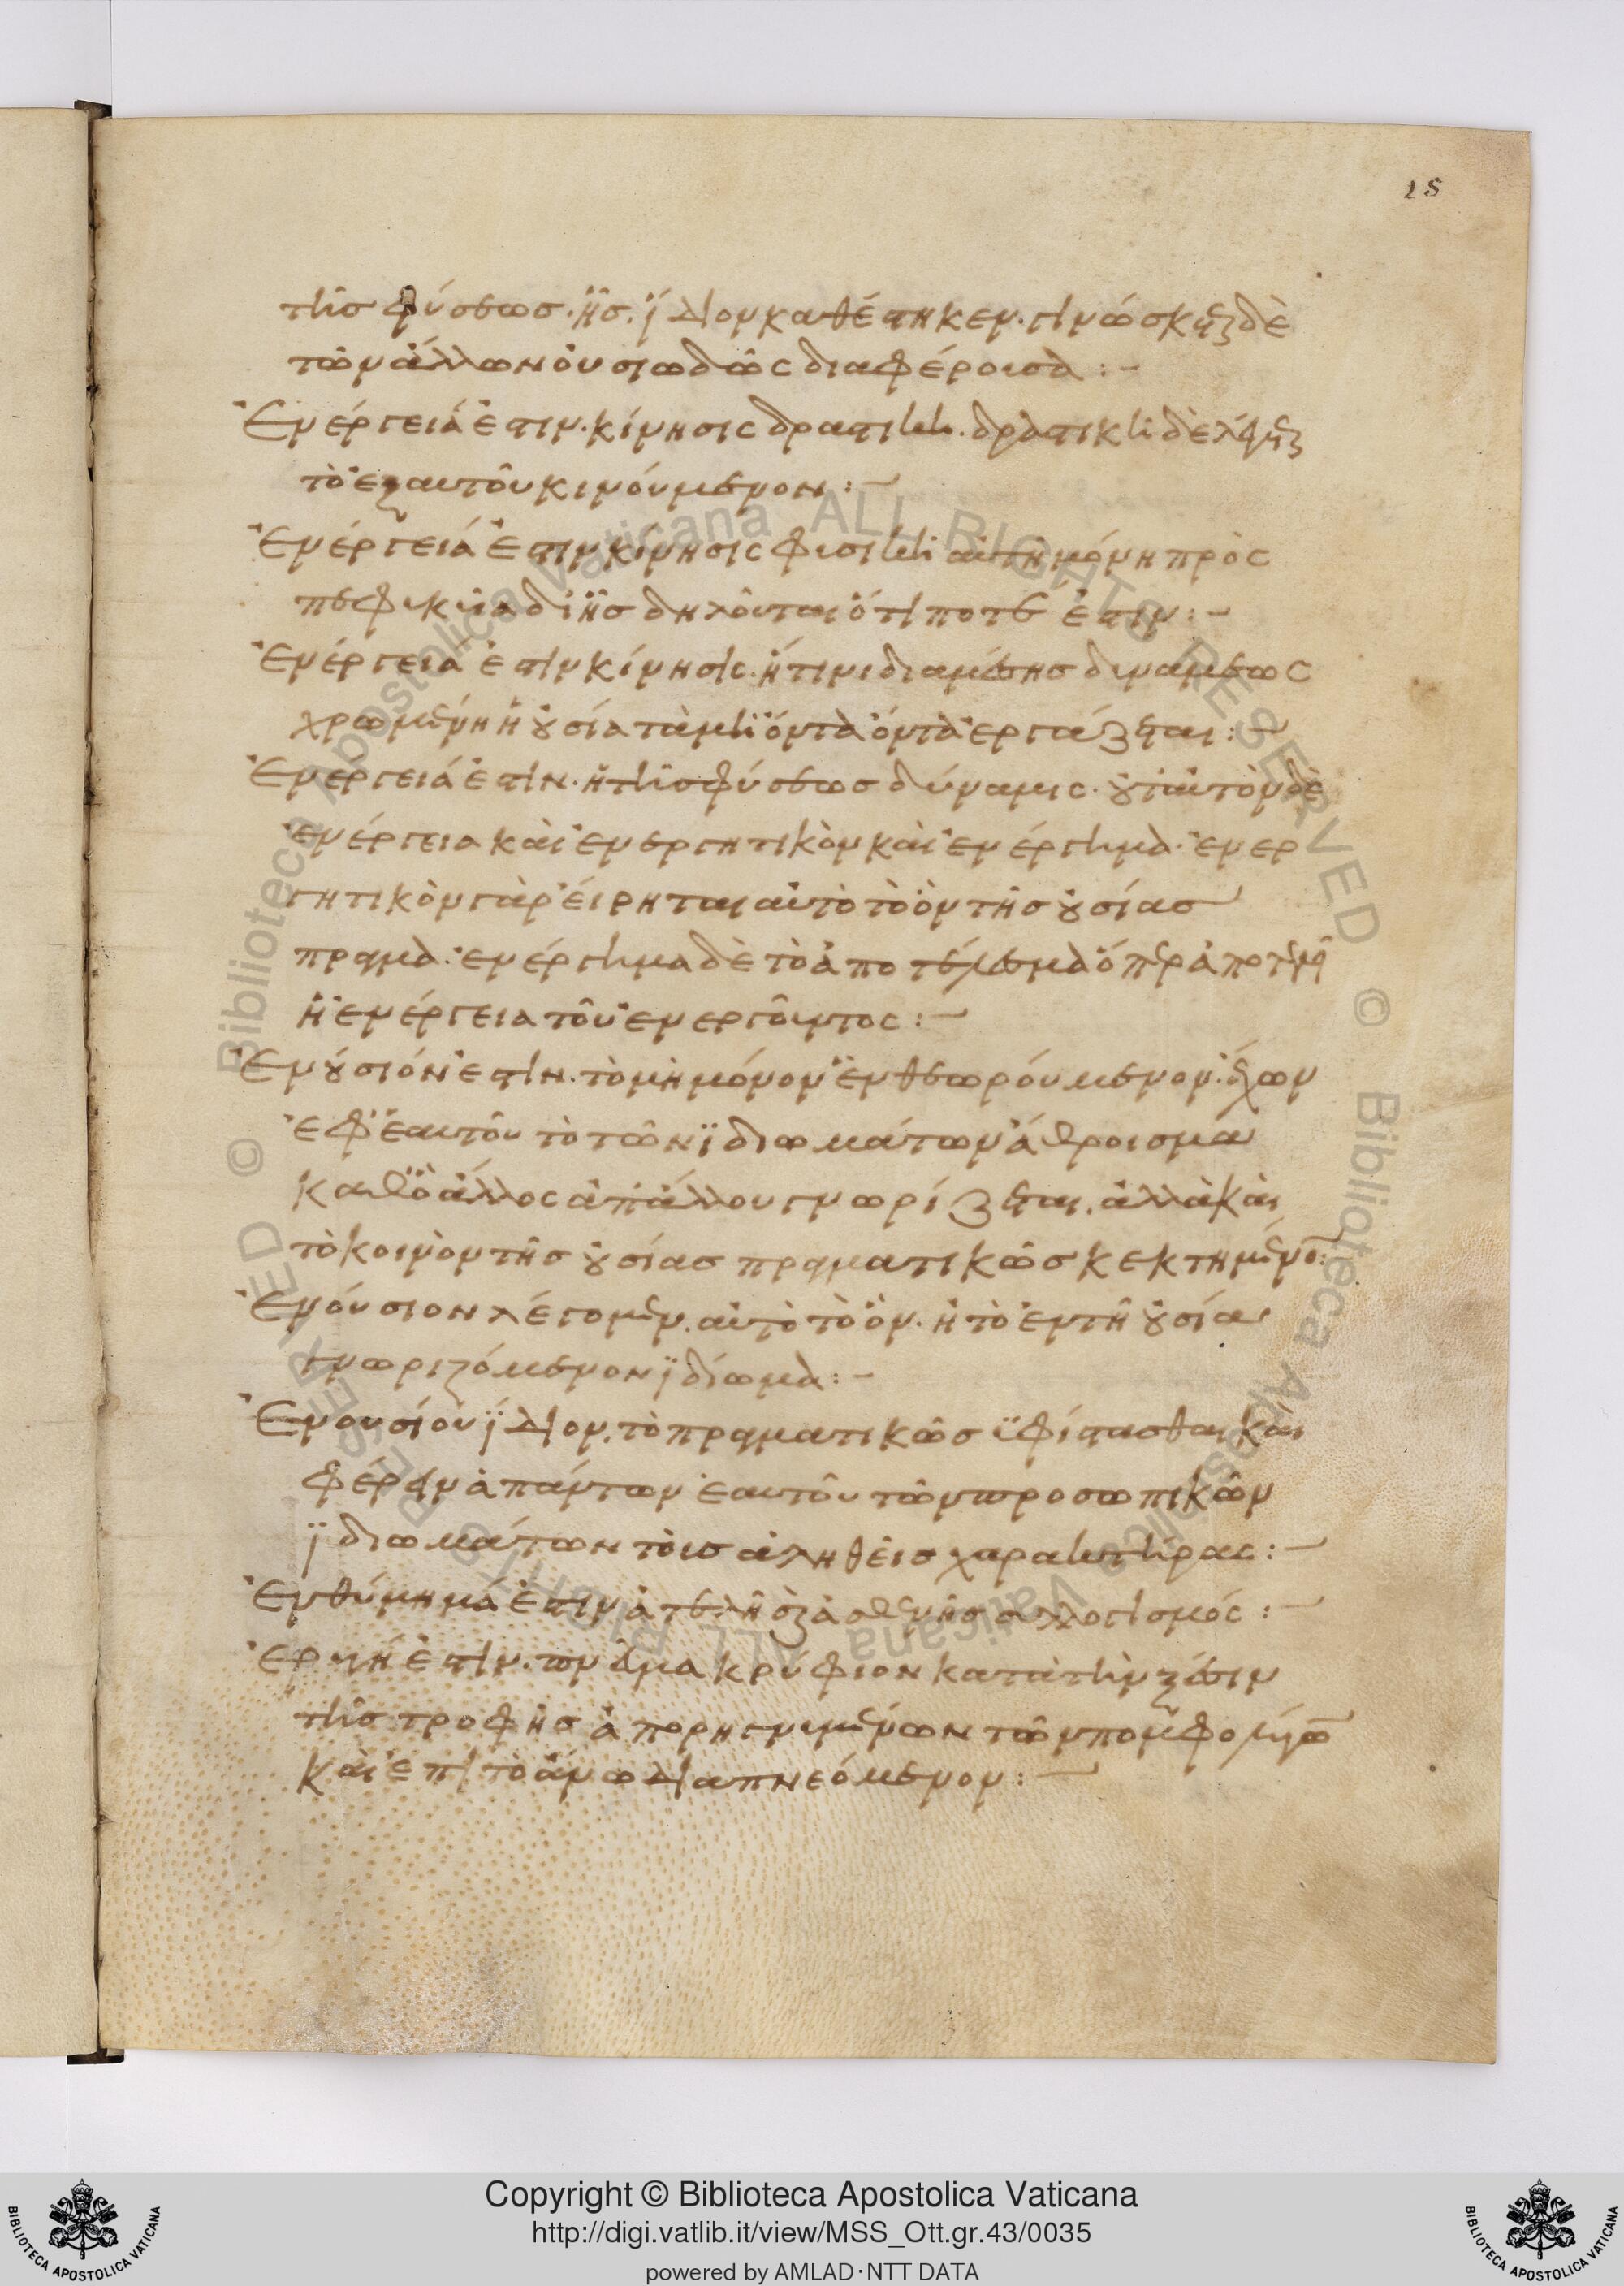 15
τῆς φύσεως· ἧς ἴδιον καθέστηκεν· γινώσκεται δὲ
τῶν ἄλλων οὐσιωδῶς διαφέρουσα :-
Ἐνέργειά ἐστιν· κίνησις δραστική· δραστικὴ δὲ λέγεται
τὸ ἐξ αὐτοῦ κινούμενον :-
Ἐνέργειά ἐστιν κίνησις φυσικὴ αὐτῆ μόνη πρὸς
πεφυκυῖα δι' ἧς δηλοῦται ὅτί ποτε ἐστιν :-
Ἐνέργειά ἐστιν κίνησις· ᾗ τινι διαμέσης δυνάμεως
χρωμένη ἡ οὐσία τὰ μὴ ὄντα ὄντα ἐργάζεται :-
Ἐνέργειά ἐστιν· ἡ τῆς φύσεως δύναμις· οὐ ταυτὸν δὲ
ἐνέργεια καὶ ἐνεργητικὸν καὶ ἐνέργημα· ἐνερ
γητικὸν γὰρ εἴρηται αὐτὸ τὸ ὂν τῆς οὐσίας
πρᾶγμα· ἐνέργημα δὲ τὸ ἀποτέλεσμα ὅπερ ἀποτελεῖ
ἡ ἐνέργεια τοῦ ἐνεργοῦντος :-
Ἐνούσιόν ἐστιν· τὸ μὴ μόνον ἐνθεωρούμενον· ἔχων
ἐφ' ἑαυτοῦ τὸ τῶν ἰδιωμάτων ἄθροισμα
καθ' ὃ ἄλλος ἀπ' ἄλλου γνωρίζεται· ἀλλὰ καὶ
τὸ κοινὸν τῆς οὐσίας πραγματικῶς κεκτημένον:
Ἐνούσιον λέγομεν· αὐτὸ τὸ ὄν· ἢ τὸ ἐν τῆ οὐσία
γνωριζόμενον ἰδίωμα :-
Ἐνουσίου ἴδιον· τὸ πραγματικῶς ὑφίστασθαι καὶ
φέρειν ἁπάντων ἑαυτοῦ τῶν προσωπικῶν
ἰδιωμάτων τοὺς ἀληθεῖς χαρακτῆρας :-
Ἐνθύμημά ἐστιν ἀτελὴς ἢ ἀσθενὴς συλλογισμός :-
Ἐρυγή ἐστιν· πνεῦμα κρύφιον κατὰ τὴν ζέσιν
τῆς τροφῆς ἀπορηγνυμένων τῶν πομφολύγων
καὶ ἐπὶ τὸ ἄνω διαπνεόμενον :-
Copyright © Biblioteca Apostolica Vaticana
http://digi.vatlib.it/view/MSS_Ott.gr.43/0035
powered by AMLAD·NTT DATA